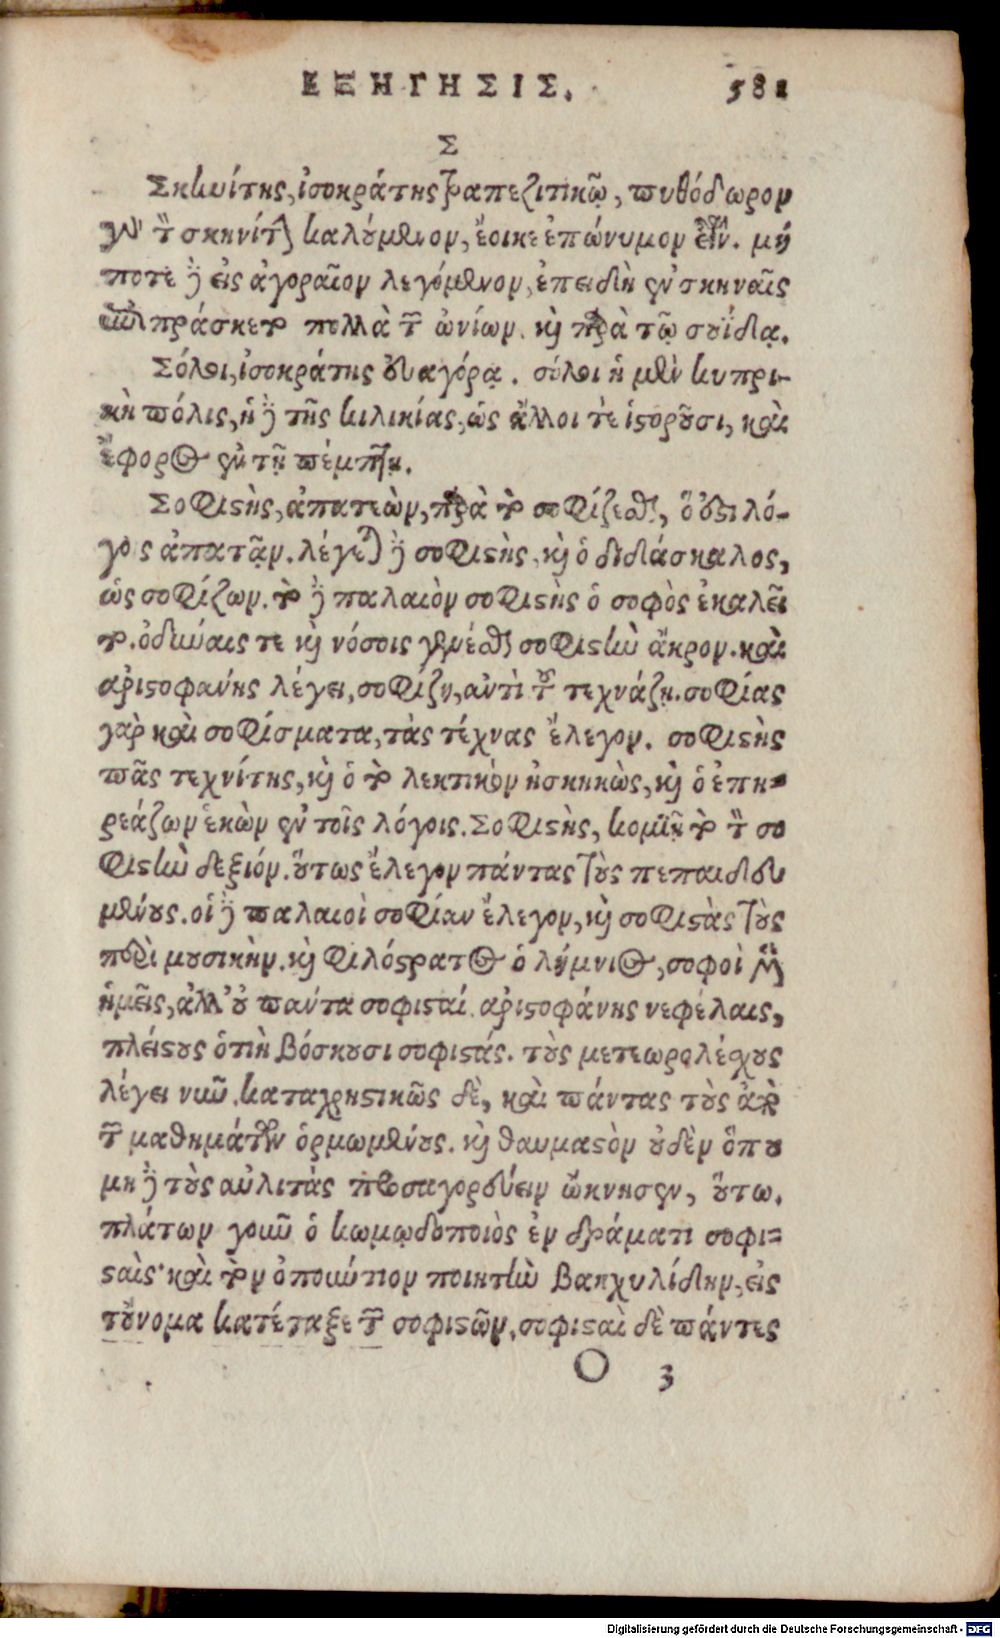 ΕΞΗΓΗΣΙΣ. 581
Σ
Σκηνίτης, ἰσοκράτης τραπεζιτικῷ, πυθόδωρον
γὰρ τὸν σκηνίτην καλούμενον, ἔοικε ἐπώνυμον εἶναι. μή
ποτε δὲ εἰς ἀγοραῖον λεγόμενον, ἐπειδὴ ἐν σκηναῖς
ἐπιπράσκετο πολλὰ τῶν ὠνίων. καὶ παρὰ τῷ σουΐδᾳ.
Σόλοι, ἰσοκράτης εὐαγόρᾳ. σόλοι ἡ μὲν κυπρι-
κὴ πόλις, ἡ δὲ τῆς κιλικίας, ὡς ἄλλοι τὲ ἱστοροῦσι, καὶ
ἔφορος ἐν τῇ πέμπτῃ.
Σοφιστὴς, ἀπατεὼν, παρὰ τὸ σοφίζεσθαι, ὅ ἐστι λό-
γοις ἀπατᾷν. λέγεται δὲ σοφιστὴς, καὶ ὁ διδάσκαλος,
ὡς σοφίζων. τὸ δὲ παλαιὸν σοφιστὴς ὁ σοφὸς ἐκαλεῖ
το. ὀδύναις τε καὶ νόσοις γενέσθαι σοφιστὴν ἄκρον. καὶ
ἀριστοφάνης λέγει, σοφίζῃ, ἀντὶ τοῦ τεχνάζῃ. σοφίας
γὰρ καὶ σοφίσματα, τὰς τέχνας ἔλεγον. σοφιστὴς
πᾶς τεχνίτης, καὶ ὁ τὸ λεκτικὸν ἠσκηκὼς, καὶ ὁ ἐπη-
ρεάζων ἑκὼν ἐν τοῖς λόγοις. Σοφιστὴς, κομιῇ τὸ τὸν σο
φιστὴν δεξιόν. οὕτως ἔλεγον πάντας τοὺς πεπαιδευ
μένους. οἱ δὲ παλαιοὶ σοφίαν ἔλεγον, καὶ σοφιστὰς τοὺς
περὶ μουσικὴν. καὶ φιλόστρατος ὁ λήμνιος, σοφοὶ μὲν
ἡμεῖς, ἀλλ' οὐ πάντα σοφισταί. ἀριστοφάνης νεφέλαις,
πλείστους ὁτιὴ βόσκουσι σοφιστάς. τοὺς μετεωρολέσχους
λέγει νῦν. καταχρηστικῶς δὲ, καὶ πάντας τοὺς ἀπὸ
τῶν μαθημάτων ὁρμωμένους. καὶ θαυμαστὸν οὐδὲν ὅπου
μηδὲ τοὺς αὐλιτὰς προσαγορεύειν ὤκνησεν, οὕτω.
πλάτων γοῦν ὁ κωμῳδοποιὸς ἐν δράματι σοφι-
σταῖς· καὶ τὸν ὀπούντιον ποιητὴν βακχυλίδην, εἰς
τοὔνομα κατέταξε τῶν σοφιστῶν. σοφισταὶ δὲ πάντες
O 3
Digitalisierung gefördert durch die Deutsche Forschungsgemeinschaft - DFG